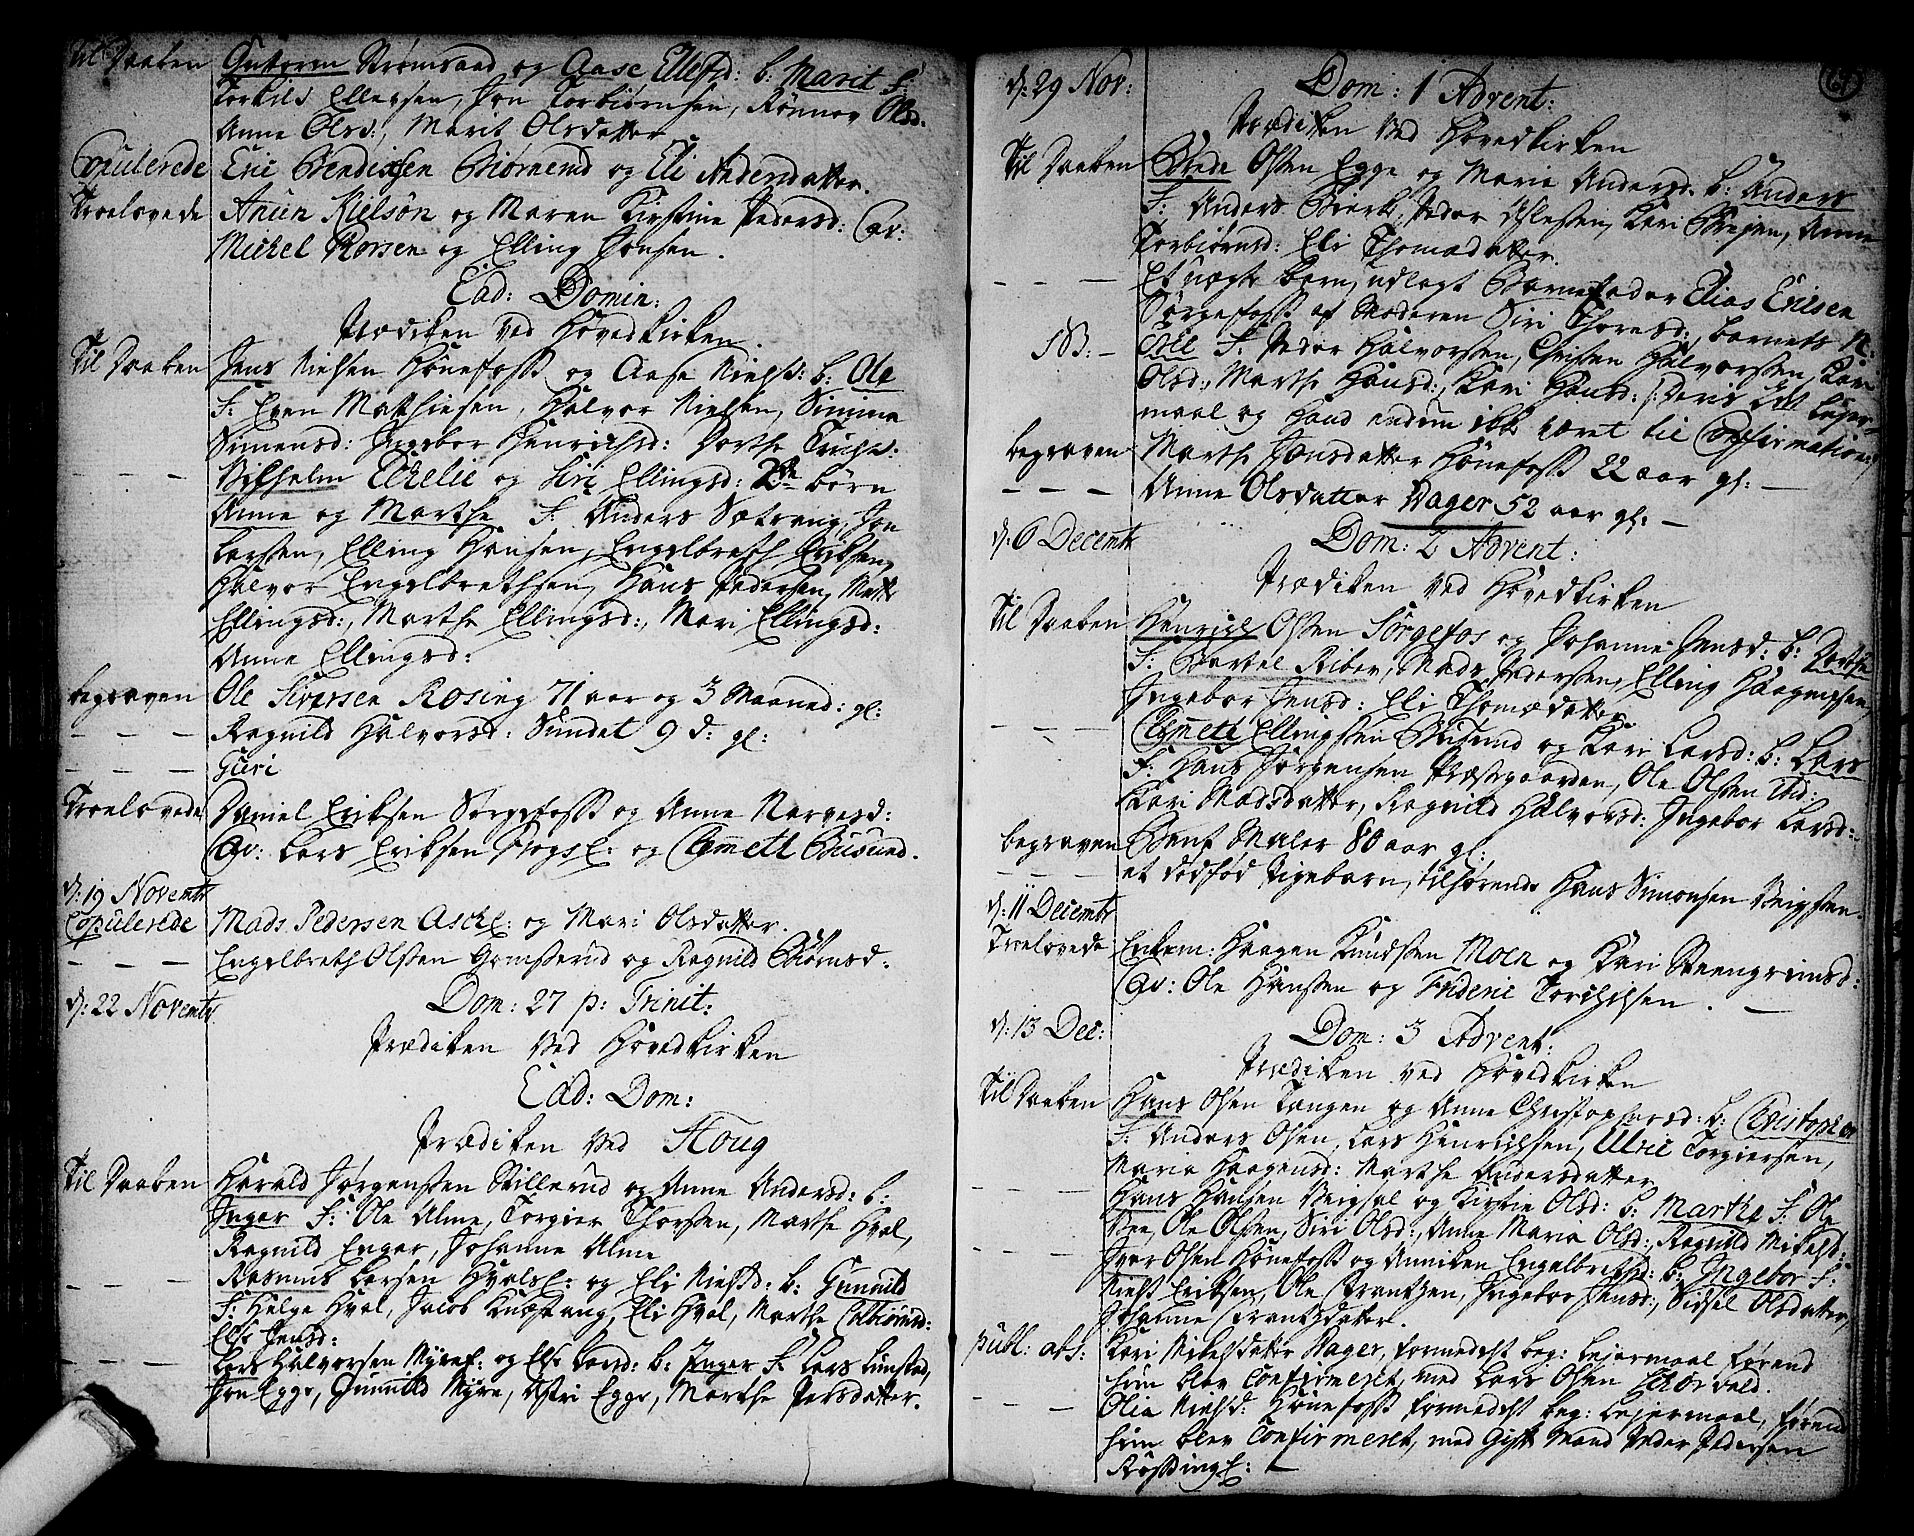 Til Daaben Gutorm Strømsaad og Aase Ellefsd: b: Marit F:
Torkild Ellefsen, Jon Torbiørnsen, Rønnov Olsd.
Anne Olsd:, Marit Olsdatter
Copulerede Eric Bendixsen Biørnerud og Eli Andersdatter.
Troelovede Anun Nielsøn og Maren Kirstine Pedersd: Cav:
Michel Thorsen og Elling Jonsen.
Ead: Domin:
Prædiken ved Hovedkirken.
Til Daaben Jens Nielsen Hønefoss og Aase Nielsd: b: Ole
F: Even Matthiesen, Halvor Nielsen, Simine
Simensd: Ingebor Henrichsd: Dorthe
— — Wilhelm Eckelie og Siri Ellingsd: 2de børn
Anne og Marthe F: Anders Sætrang, Jon
Larssen, Elling Hansen, Engelbreth Eriksen,
Halvor Engelbrethsen, Hans Pedersen,
Ellingsd:, Marthe Ellingsd:, Mari Ellingsd:
Anne Ellingsd:
begraven Ole Siversen Rosing 71 aar og 3 Maaned: gl:
— — — Ragnild Halvorsd: Sundet 9 d: gl:
— — — Guri
Troelovede Daniel Eriksen Sørgefoss og Anne
Cav: Lars Eriksen og Clemett Busund.
d: 19 Novembr
Copulerede Mads Pedersen Askl: og Mari Olsdatter.
— — — Engelbreth Olsen Gomserud og Ragnild Biørnsd:
d: 22 Novembr Dom: 27 p: Trinit:
Prædiken ved Hovedkirken
Ead: Dom:
Prædiken ved Houg
Til Daaben Harald Jørgensen Skillerud og Anne Andersd: b:
Inger F: Ole Alme, Torgier Thorsen, Marthe Hval,
Ragnild Enger, Johanne Alme
— — — Rasmus Larsen Hvalsl: og Eli Nielsd: b: Gunnild
F: Helge Hval, Jacob Knæstang, Eli Hval, Marthe Colbiørnsd:
Else Jensd:
— — — Lars Halvorsen Myref: og Else Larsd: b: Inger F: Lars Lunstad,
Jon Egge, Gunnild Myre, Astri Egge, Marthe Persdatter.
61
d: 29 Nov: Dom: 1 Advent:
Prædiken ved Hovedkirken
Til Daaben Brede Olsen Egge og Marie Andersd. b: Anders
F: Anders Bierk, Peder Aslesen, Kari Anne
Torbiørnsd: Eli Thomædatter.
— — — Et uægte barn, udlagt Barnefader Elias Erichsen
Sørgefoss af Moderen Siri Thoresd:, barnets N:
NB: — F: Peder Halvorsen, Christen Halvorsen, Kari
Olsd:, Marthe Hansd:, Kari Hansd:
maal og Hand endnu ikke været til Confirmation:
begraven Marthe Hansdatter Hønefoss 22 aar gl: —
— — — Anne Olsdatter Dager 52 aar gl: —
d: 6 Decembr Dom: 2 Advent:
Prædiken ved Hovedkirken
Til Daaben Henrich Olsen Sørgefos og Johanne Jensd: b: Dorthe
F: Bartel Riber, Mads Pedersen, Elling Haagensen,
Ingebor Jensd: Eli Thomædatter.
— — — Clemett Ellingsen Busund og Kari Larsd: b: Lars
F: Hans Jørgensen Præstegaarden, Ole Olsen Ibid:
Kari Madsdatter, Ragnild Halvorsd: Ingebor Larsd:
begraven Bent Maler 80 aar gl:
— — — et dødfød Pigebarn, tilhørende Hans Simonsen
d: 11 Decembr
Troelovede Enkem: Haagen Knudsen Moen og Kari Steengrimsd:
Cav: Ole Hansen og Frideric Torchilsen. —
d: 13 Dec: Dom: 3 Advent:
Prædiken ved Hovedkirken
Til Daaben Hans Olsen Tangen og Anne Christophersd: b: Christopher
F: Anders Olsen, Lars Henrichsen, Ulric Torgiersen,
Maria Haagensd: Marthe Andersdatter
— — — Hans Hansen og Kirstie Olsd: b: Marthe F: Ole
Bee, Ole Olsen, Siri Olsd:, Anne Maria Olsd:, Ragnild Mikelsd:
— — — Iver Olsen Hønefoss og Anniken Engelbrethsd: b: Ingebor F:
Niels Eriksen, Ole Frantzen, Ingebor Jensd:, Sidsel Olsdatter,
Johanne Frantzdatter.
publ: abs: Kari Mikelsdatter Dager, formedelst beg: Lejermaal førend
hun blev Confirmeret, med Lars Olsen
— — Olia Nielsd: Hønefoss formedelst beg: Lejermaal, førend
hun blev Confirmeret, med Gift Mand Peder Pedersen